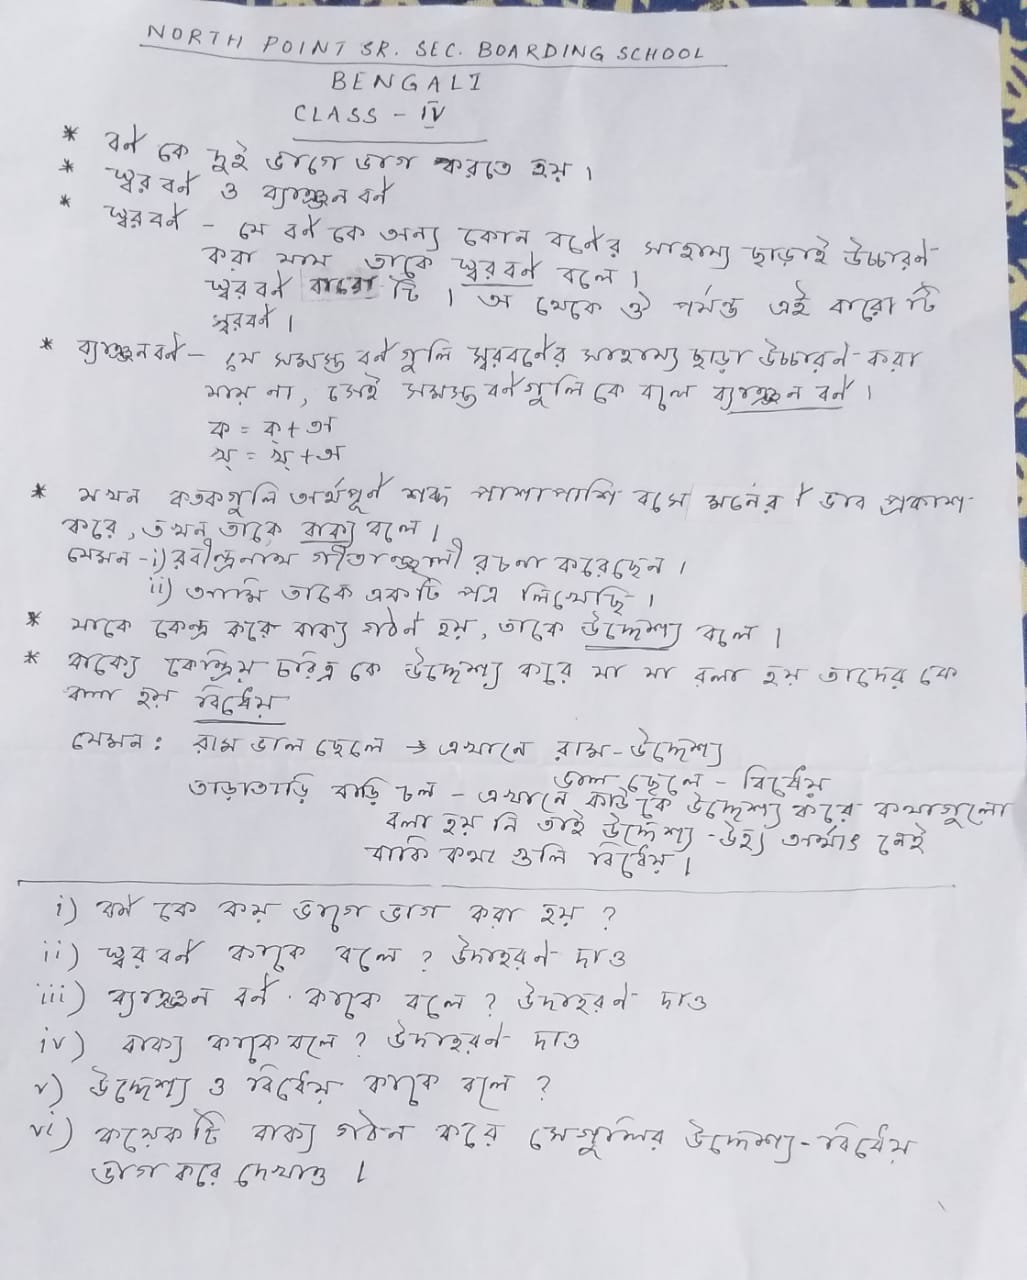 NORTH POINT SR. SEC. BOARDING SCHOOL
BENGALI
CLASS - IV
* বর্ণ কে দুই ভাগে ভাগ করতে হয়।
* স্বর বর্ণ ও ব্যাঞ্জন বর্ণ
* স্বরবর্ণ - যে বর্ণ কে অন্য কোন বর্ণের সাহায্য ছাড়াই উচ্চারণ
করা যায় তাকে স্বরবর্ণ বলে।
স্বরবর্ণ বারো টি। অ থেকে ঔ পর্যন্ত এই বারো টি
স্বরবর্ণ।
* ব্যাঞ্জনবর্ণ - যে সমস্ত বর্ণ গুলি স্বরবর্ণের সাহায্য ছাড়া উচ্চারণ করা
যায় না, সেই সমস্ত বর্ণগুলি কে বলে ব্যাঞ্জন বর্ণ।
ক = ক্ + অ
খ্ = খ্ + অ
* যখন কতকগুলি অর্থপূর্ণ শব্দ পাশাপাশি বসে মনের ভাব প্রকাশ
করে, তখন তাকে বাক্য বলে।
যেমন - i) রবীন্দ্রনাথ গীতাঞ্জলী রচনা করেছেন।
ii) আমি তাকে একটি পত্র লিখেছি।
* যাকে কেন্দ্র করে বাক্য গঠন হয়, তাকে উদ্দেশ্য বলে।
* বাক্যে কেন্দ্রিয় চরিত্র কে উদ্দেশ্য করে যা যা বলা হয় তাদের কে
বলা হয় বিধেয়
যেমন : রাম ভাল ছেলে → এখানে রাম - উদ্দেশ্য
ভাল ছেলে - বিধেয়
তাড়াতাড়ি বাড়ি চল - এখানে কাউকে উদ্দেশ্য করে কথাগুলো
বলা হয় নি তাই উদ্দেশ্য - উহ্য অর্থাৎ নেই
বাকি কথা গুলি বিধেয়।
i) বর্ণ কে কয় ভাগে ভাগ করা হয় ?
ii) স্বর বর্ণ কাকে বলে ? উদাহরণ দাও
iii) ব্যাঞ্জন বর্ণ কাকে বলে ? উদাহরণ দাও
iv) বাক্য কাকে বলে ? উদাহরণ দাও
v) উদ্দেশ্য ও বিধেয় কাকে বলে ?
vi) কয়েকটি বাক্য গঠন করে সেগুলির উদ্দেশ্য - বিধেয়
ভাগ করে দেখাও।